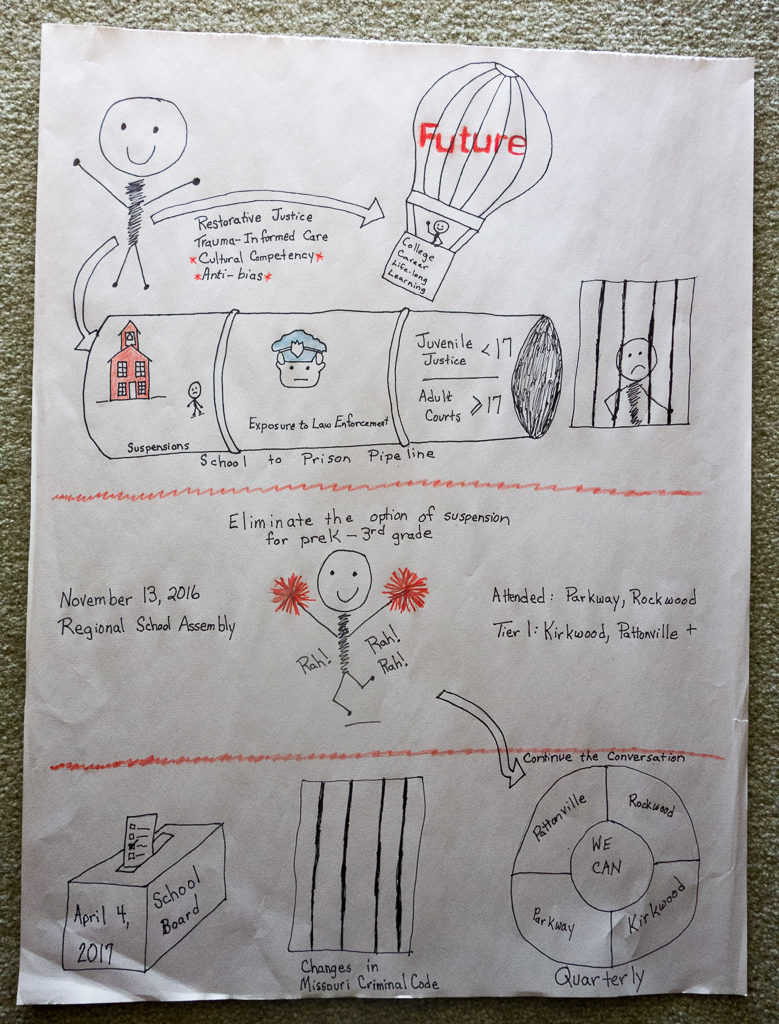 Future
Restorative Justice
Trauma-Informed Care
*Cultural Competency*
*Anti-bias*
College
Career
Life-long
Learning
Suspensions
Exposure to Law Enforcement
Juvenile
Justice
<17
Adult
Courts
⩾17
School to Prison Pipeline
Eliminate the option of suspension
for preK - 3rd grade
November 13, 2016
Regional School Assembly
Rah!
Rah!
Rah!
Attended: Parkway, Rockwood
Tier 1: Kirkwood, Pattonville +
Continue the Conversation
Pattonville
Rockwood
WE
CAN
Parkway
Kirkwood
Quarterly
April 4,
2017
School
Board
Changes in
Missouri Criminal Code